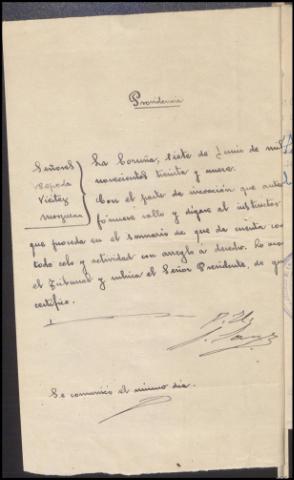 Providencia
Señores
Cepeda
Viétez
La Coruña, siete de Junio de mil
novecientos treinta y nueve.
Con el parte de incoación que ante-
fórmese rollo y dígase al instructor
que proceda en el sumario de que da cuenta con
todo celo y actividad con arreglo a derecho. Lo acor
el Tribunal y rubrica el Señor Presidente, de que
certifico.
Se comunicó el mismo día.